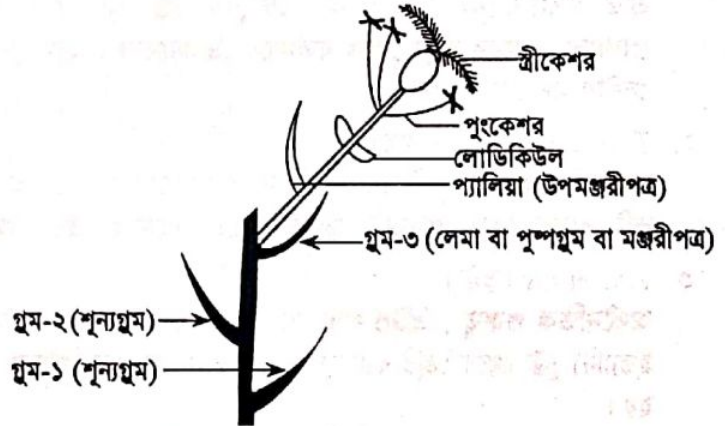 স্ত্রীকেশর
পুংকেশর
লোডিকিউল
প্যালিয়া (উপমঞ্জরীপত্র)
গ্লুম-৩ (লেমা বা পুষ্পগ্লুম বা মঞ্জরীপত্র)
গ্লুম-২ (শূন্যগ্লুম)
গ্লুম-১ (শূন্যগ্লুম)